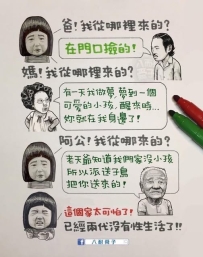 爸!我從哪裡來的?
在門口撿的!
媽!我從哪裡來的?
有一天我做夢,夢到一個
可愛的小孩,醒來時…
妳就在我身邊了!
阿公!我從哪來的?
老天爺知道我們家沒小孩
所以派送子鳥
把你送來的!
這個家太可怕了!
已經兩代沒有性生活了!!
人耐冊子